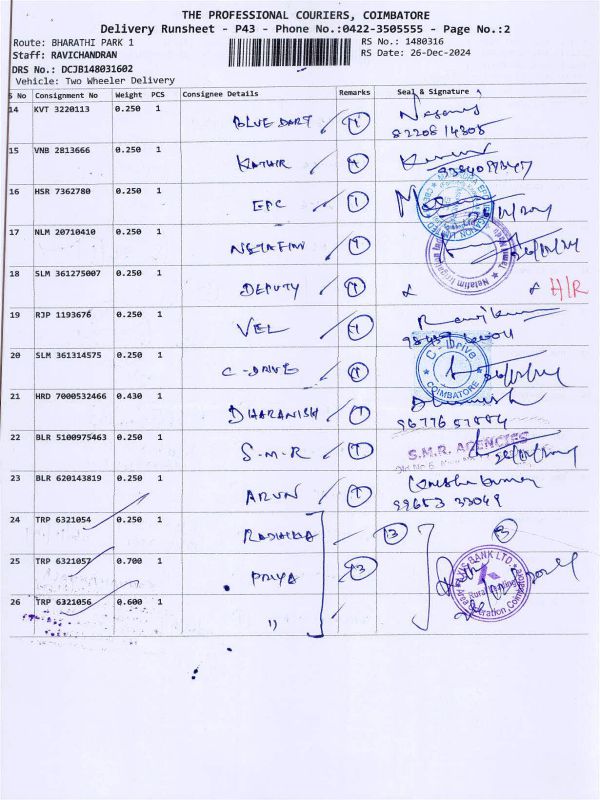 THE PROFESSIONAL COURIERS, COIMBATORE
Delivery Runsheet - P43 - Phone No.:0422-3505555 - Page No.:2
Route: BHARATHI PARK 1
RS No.: 1480316
Staff: RAVICHANDRAN
RS Date: 26-Dec-2024
DRS No.: DCJB148031602
Vehicle: Two Wheeler Delivery
S No Consignment No Weight PCS Consignee Details Remarks Seal & Signature
14 KVT 3220113 0.250 1
BLUE DART 1
15 VNB 2813666 0.250 1
KATHIR
16 HSR 7362780 0.250 1
EPC 1
17 NLM 20710410 0.250 1
NETAFIM 1
18 SLM 361275007 0.250 1
DEPUTY 1 H/R
19 RJP 1193676 0.250 1
VEL 1
20 SLM 361314575 0.250 1
C-DRIVE 1 C-Drive COIMBATORE
21 HRD 7000532466 0.430 1
DHARANISH 1
22 BLR 5100975463 0.250 1
S.M.R 1 S.M.R. AGENCIES
23 BLR 620143819 0.250 1
ARUN 1
99653 33049
24 TRP 6321054 0.250 1
RADHIKA 3 3
25 TRP 6321057 0.700 1
PRIYA
26 TRP 6321056 0.600 1
11